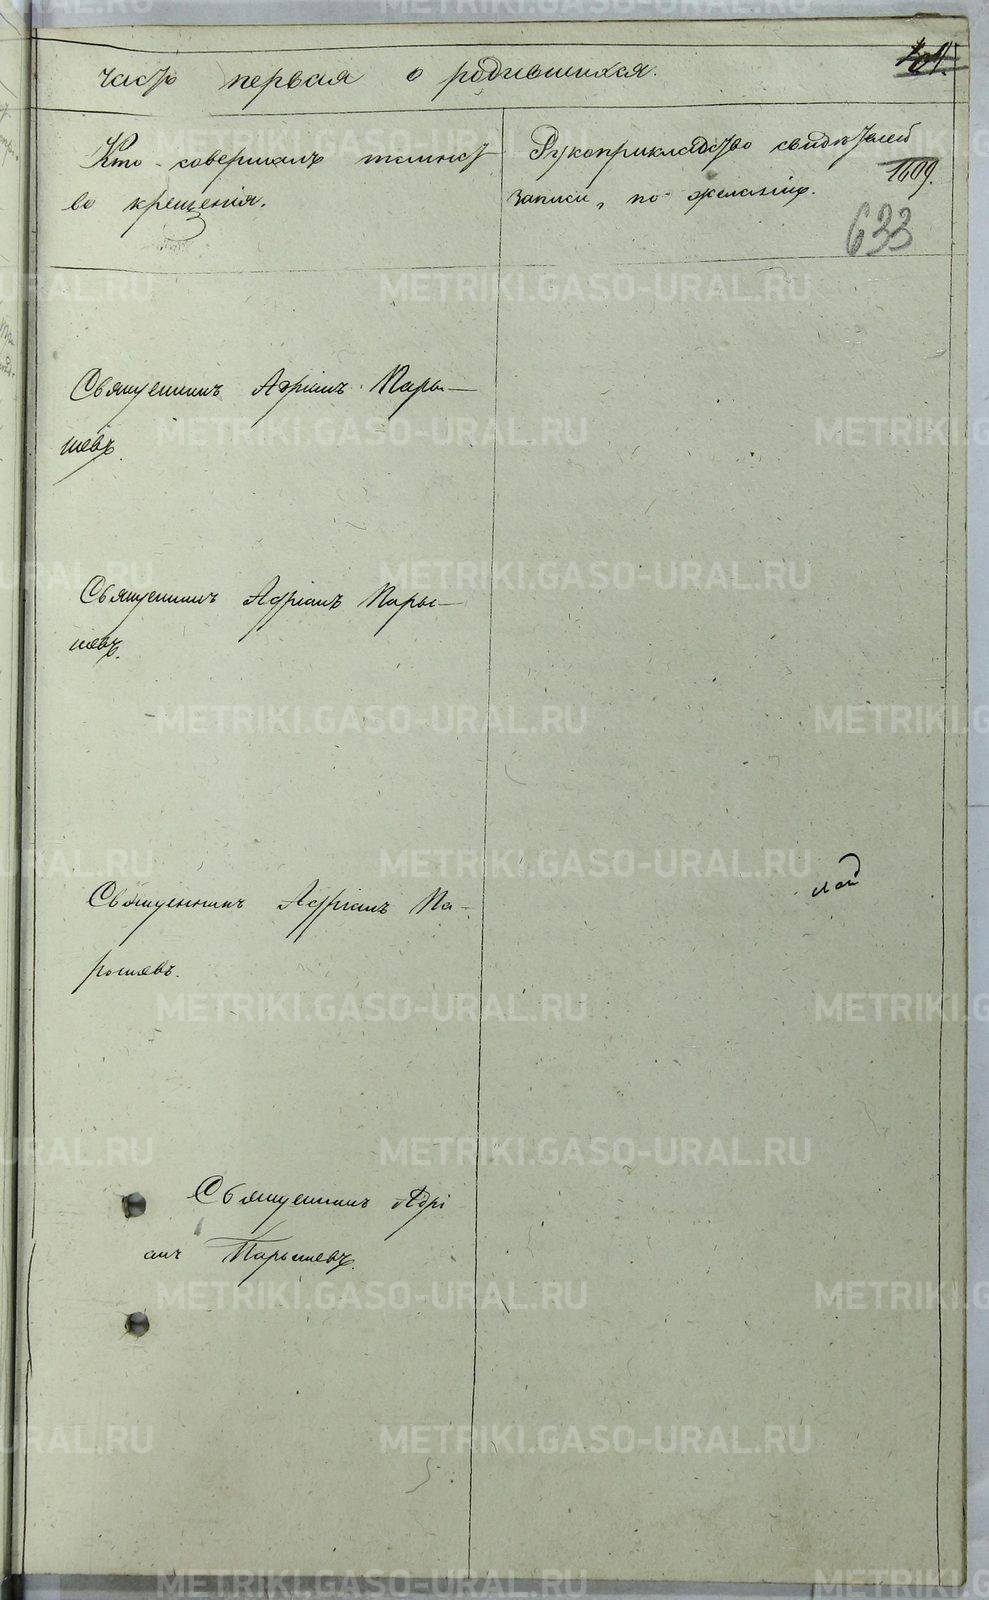 часть первая о родившихся.
Кто совершалъ таинст
во крещенія.
Рукоприкладство свидѣтелей
записи, по желанію.
1609.
633
Священникъ Адріанъ Пары–
шевъ.
Священникъ Адріанъ Пары–
шевъ.
Священникъ Адріанъ Па–
рышевъ.
Священникъ Адрі
анъ Парышевъ.
METRIKI.GASO-URAL.RU